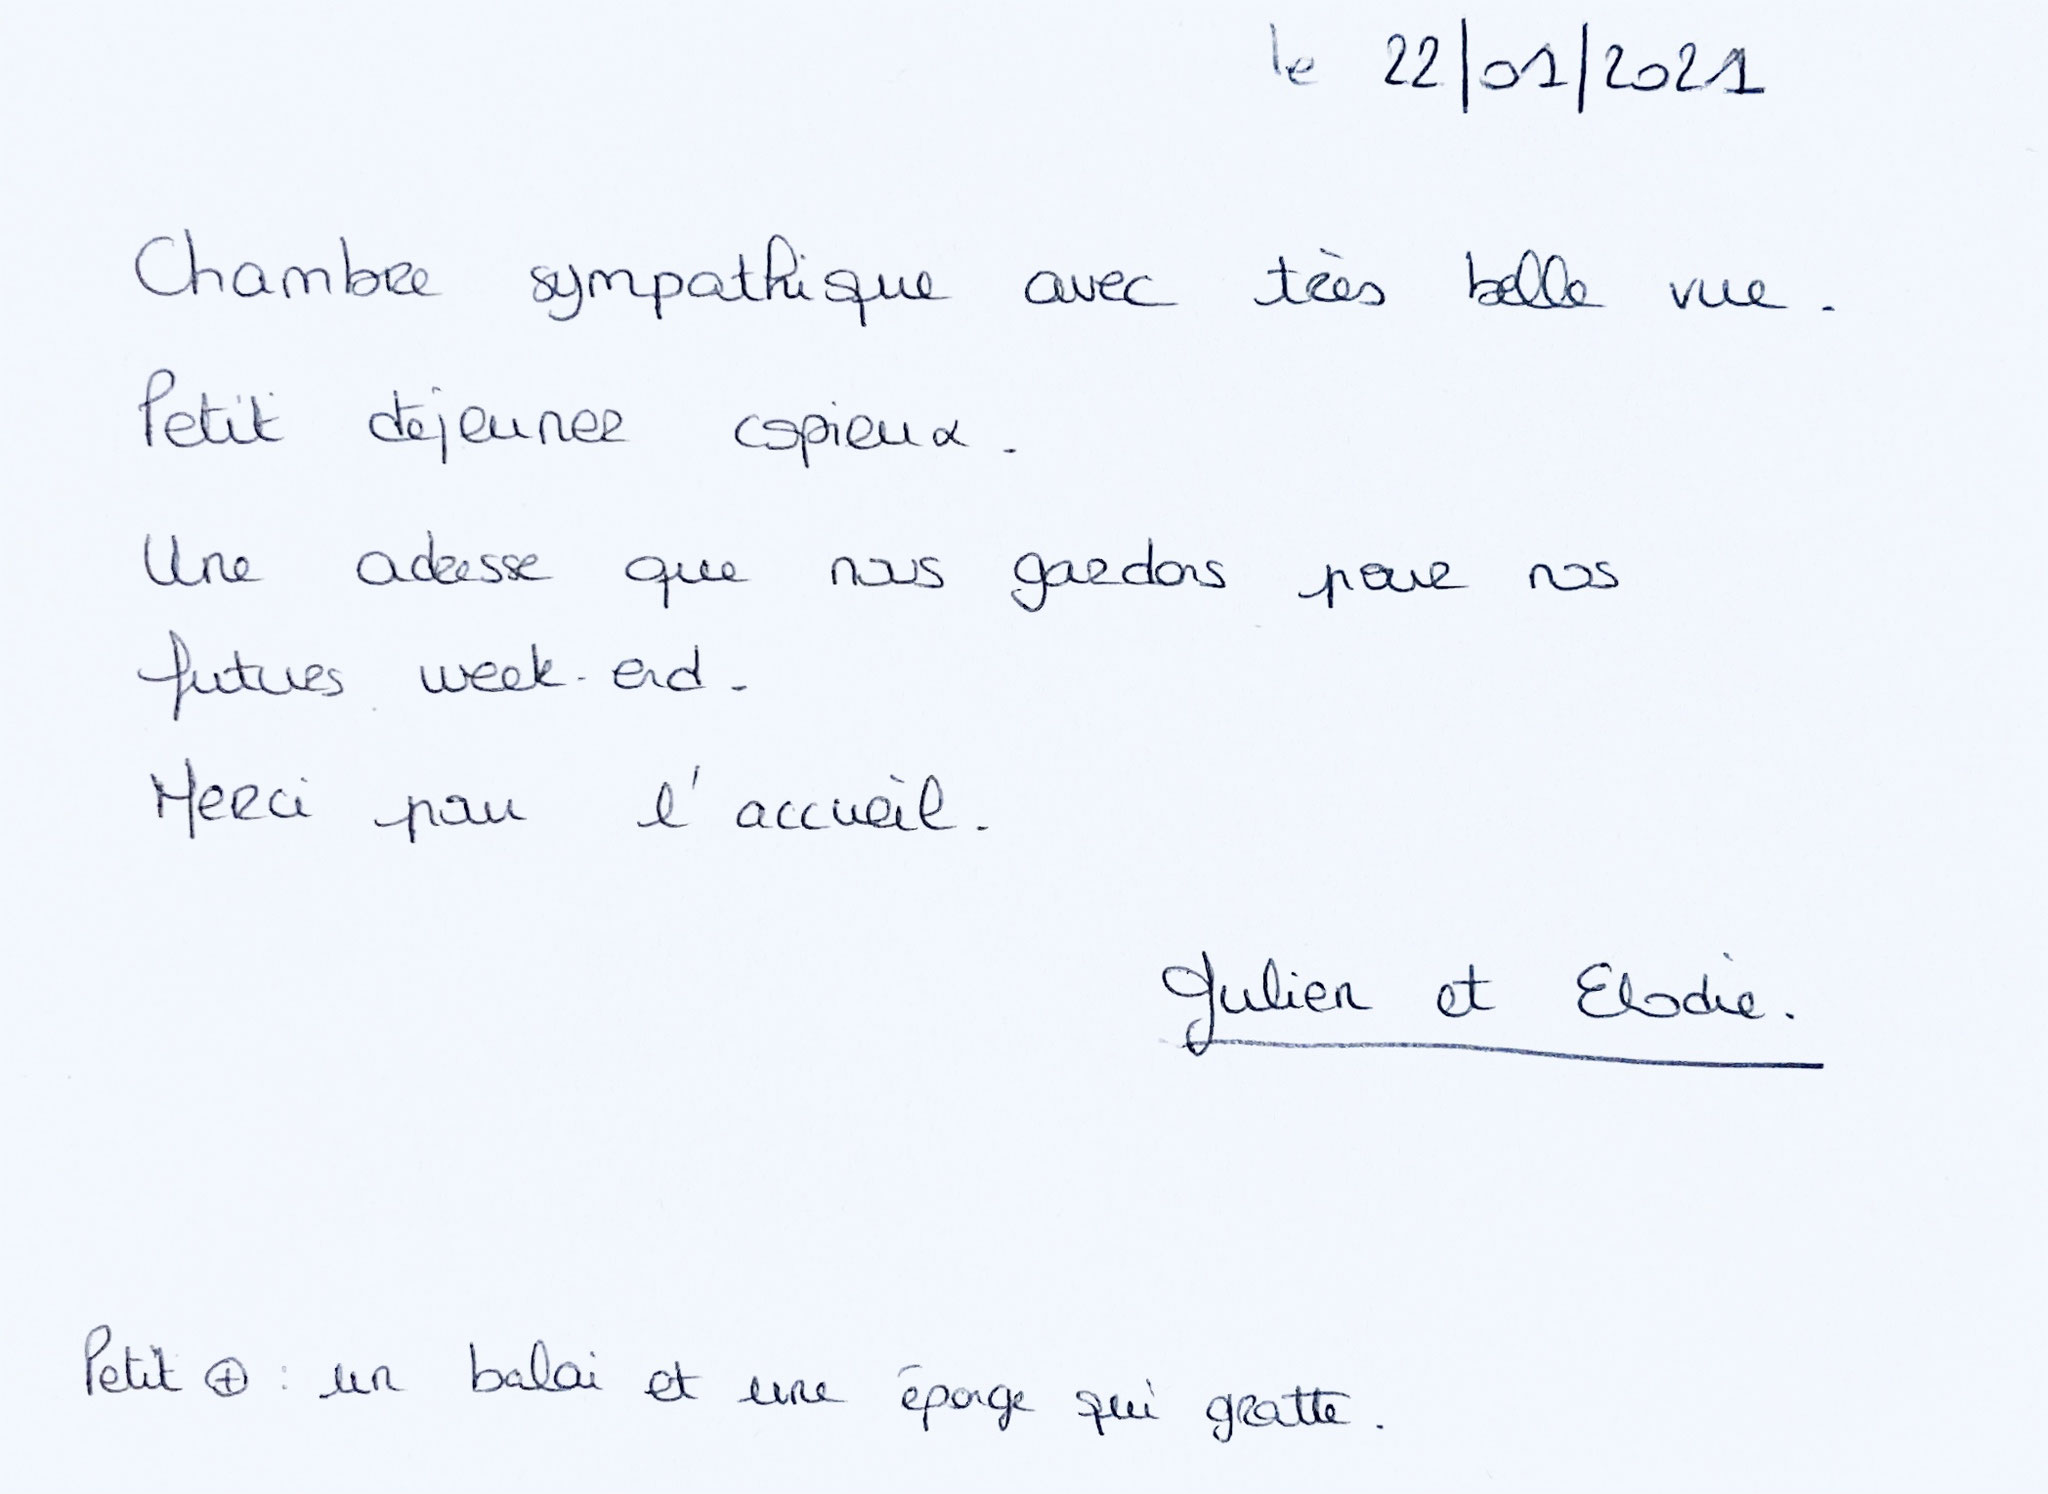 le 22/01/2021
Chambre sympathique avec très belle vue.
Petit déjeuner copieux.
Une adresse que nous gardons pour nos
futures week-end.
Merci pour l'accueil.
Julien et Elodie.
Petit ⊕ : un balai et une éponge qui gratte.